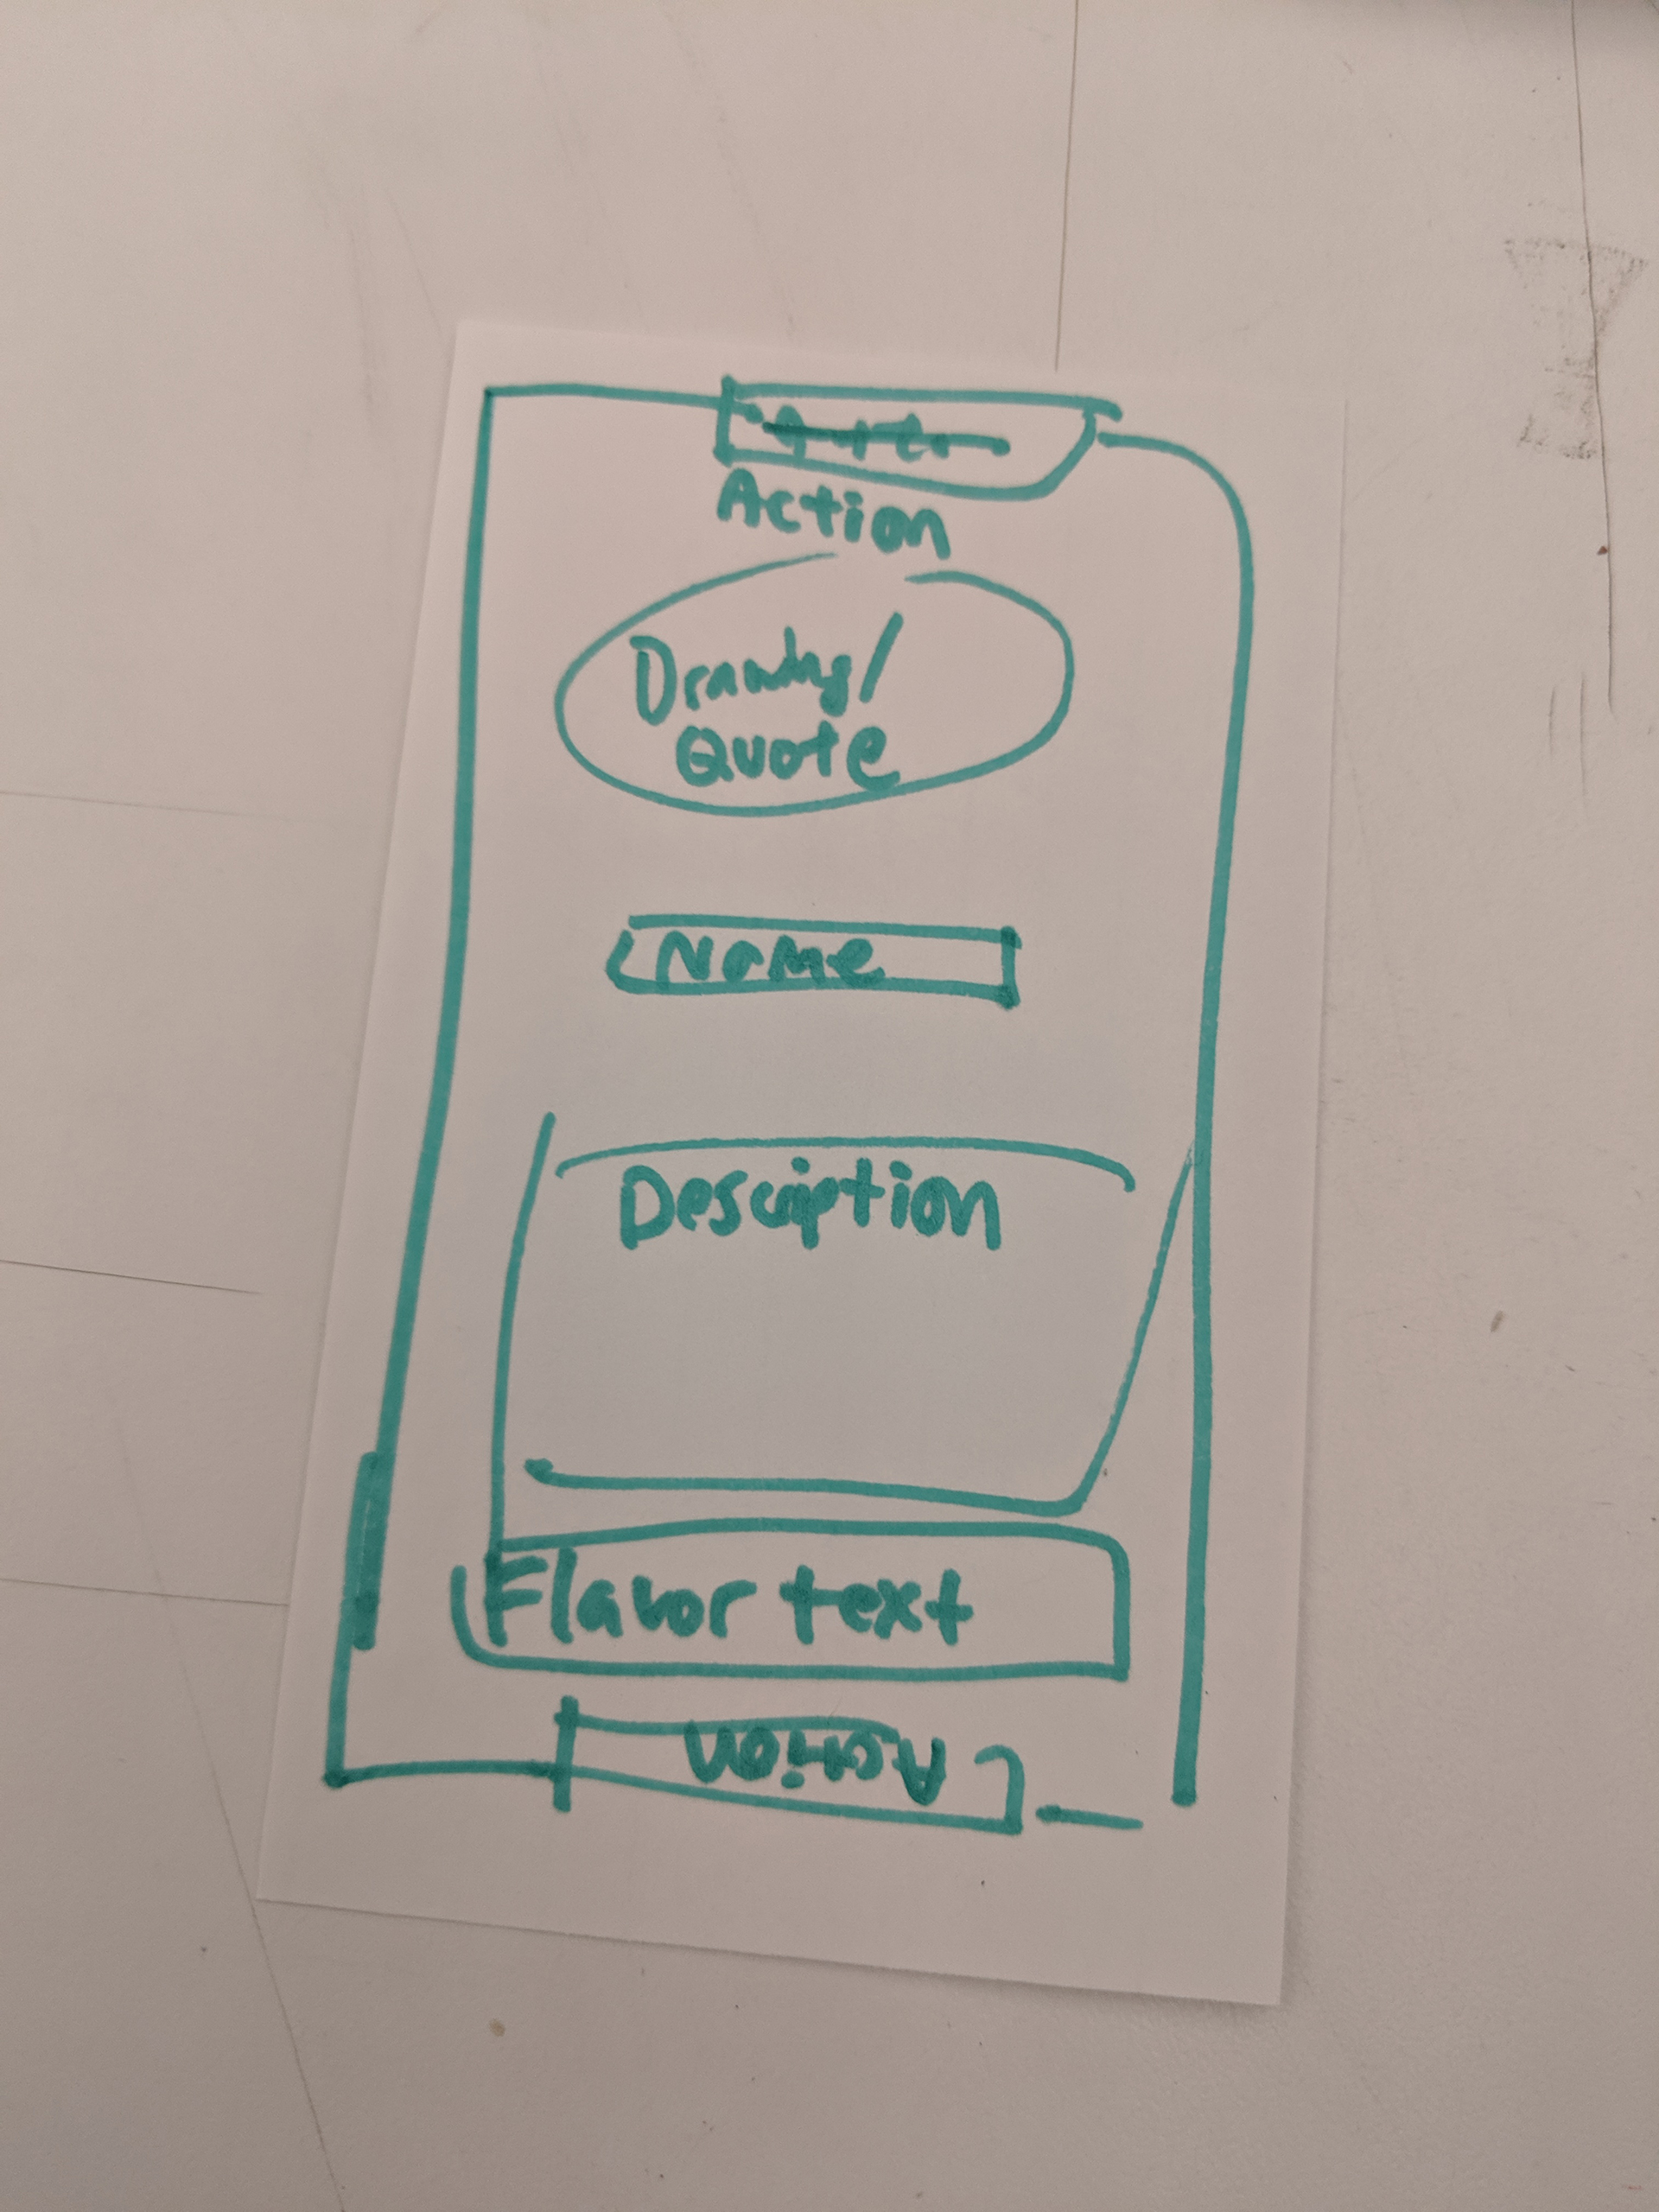 Action
Drawing/
Quote
Name
Description
Flavor text
Action